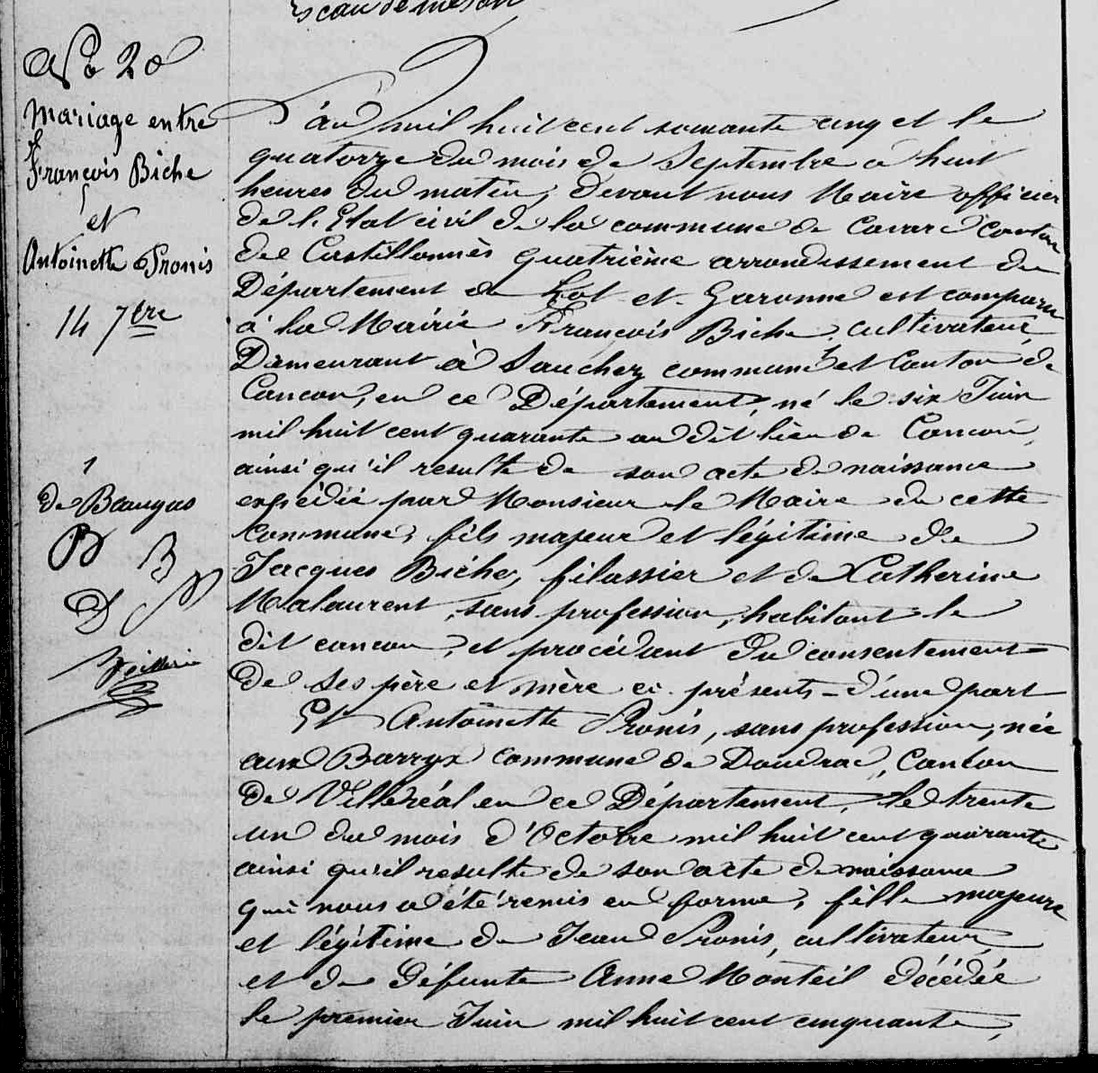 No 20
Mariage entre
François Biche
et
Antoinette Pronis
14 7bre
1
de Baugas
B B
D
L'an mil huit cent soixante cinq et le
quatorze du mois de Septembre à huit
heures du matin; devant nous Maire officier
de l'Etat civil de la commune de Cavarc canton
de Castillonnès quatrième arrondissement du
Département de Lot-et-Garonne est comparu
à la Mairie François Biche, cultivateur,
Demeurant à commune et Canton de
Cancon, en ce Département, né le six Juin
mil huit cent quarante au dit lieu de Cancon,
ainsi qu'il resulte de son acte de naissance
expédié par Monsieur le Maire de cette
commune, fils majeur et légitime de
Jacques Biche, filassier et de Catherine
Malaurent, sans profession, habitant le
dit cancon, et procédant du consentement
de ses père et mère ci-présents - d'une part
Et Antoinette Pronis, sans profession, née
aux Barrys commune de Doudrac, Canton
de Villeréal en ce Département, le trente
un du mois d'Octobre mil huit cent quarante
ainsi qu'il resulte de son acte de naissance
qui nous a été remis en forme, fille majeure
et légitime de Jean Pronis, cultivateur,
et de défunte Anne Monteil décédée
le premier Juin mil huit cent cinquante,